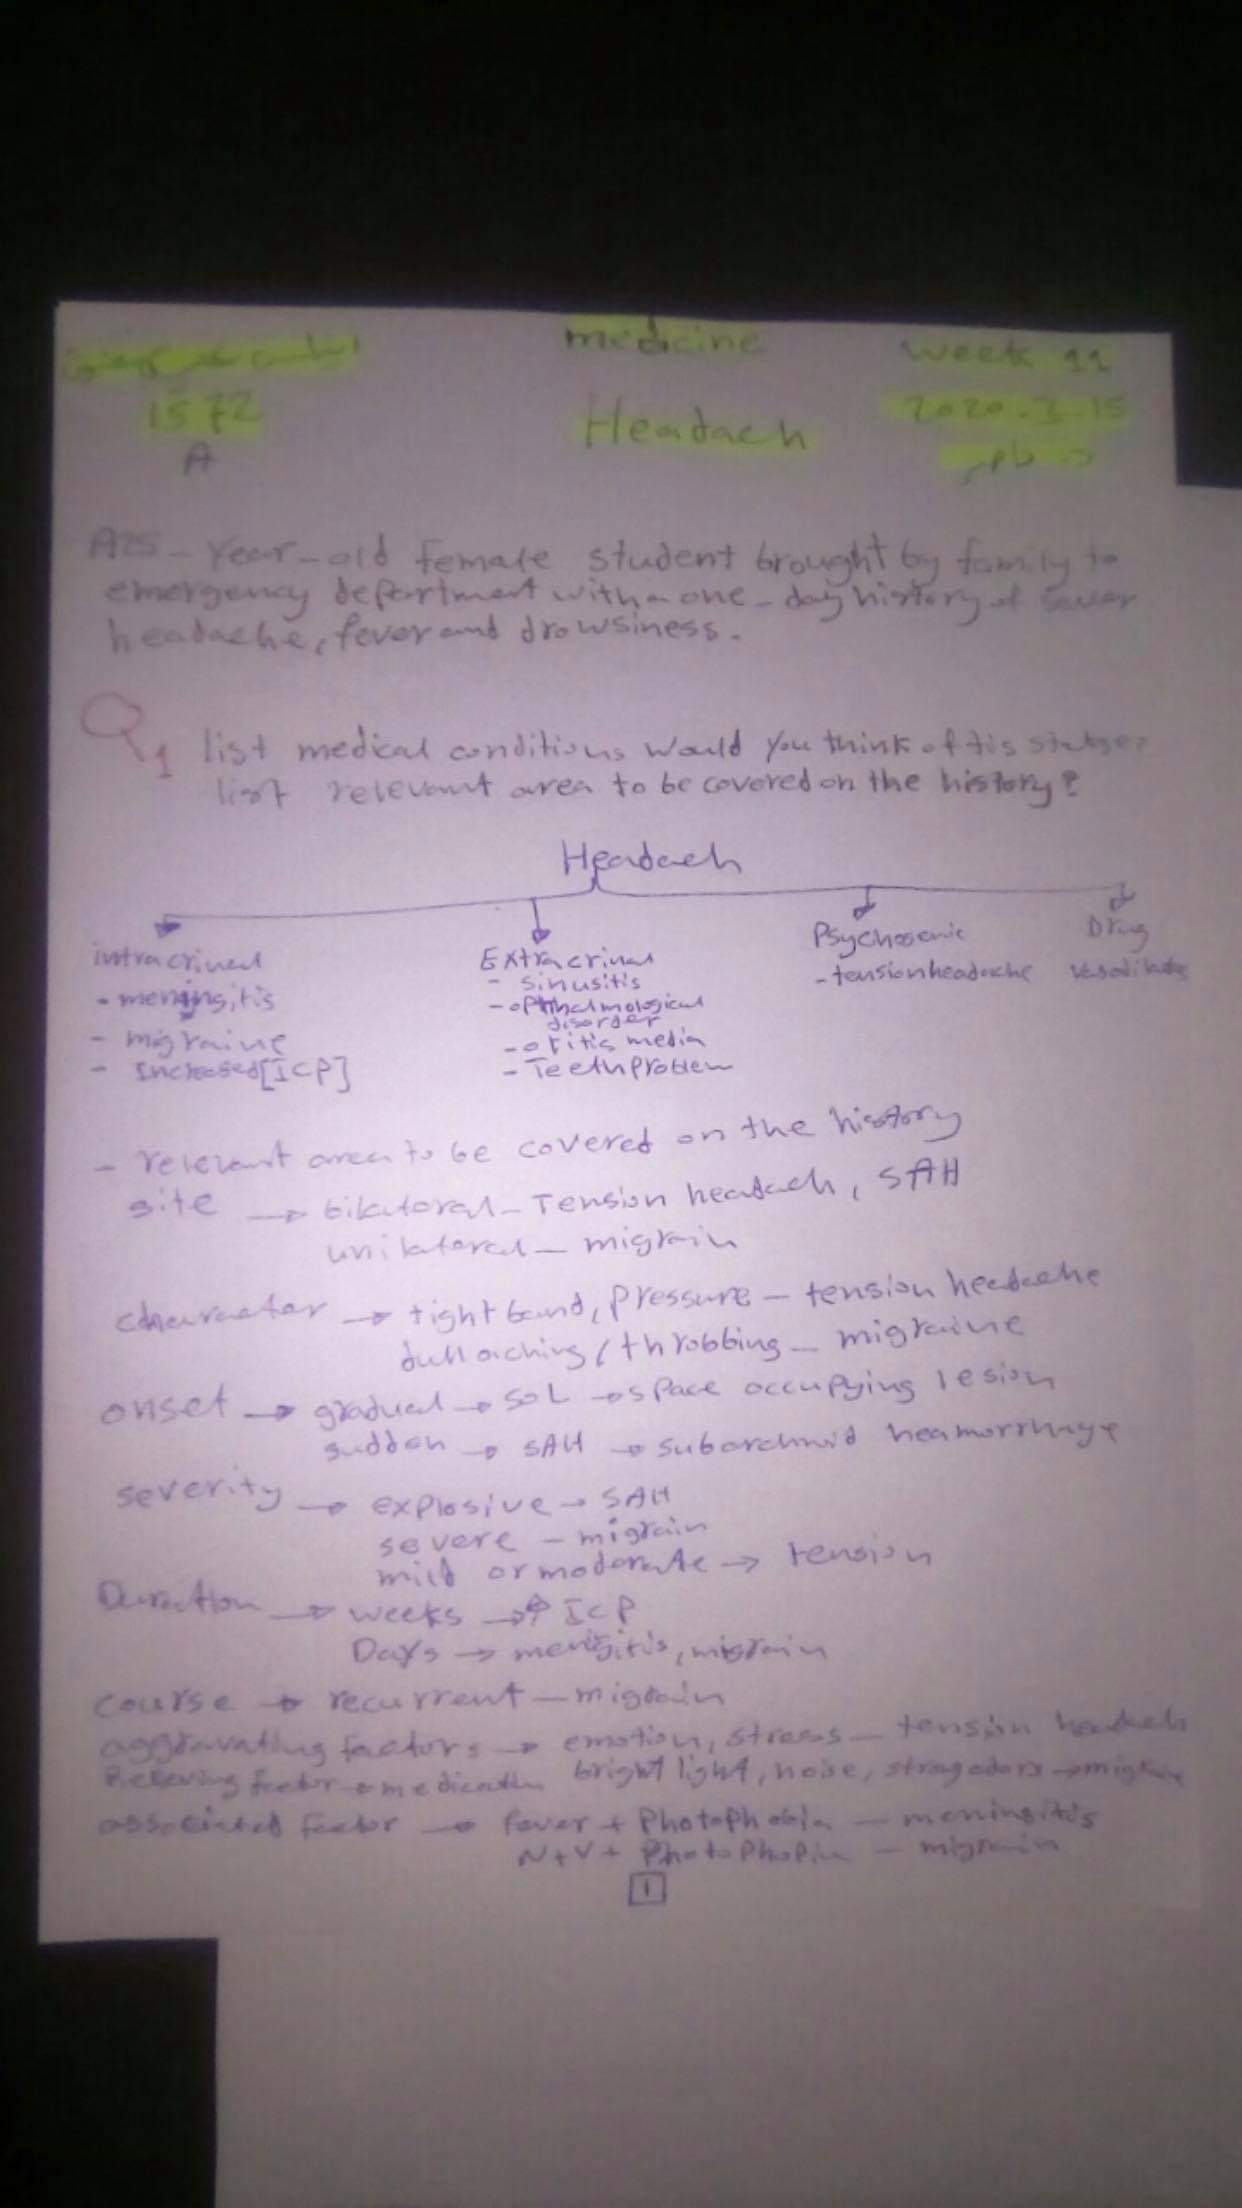 medicine
week 11
1572
Headach
2020.3.15
A
د. طاهر
A25-Year-old female student brought by family to
emergency department with a one-day history of sever
headache, fever and drowsiness.
Q1 list medical conditions would you think of tis statge?
list relevant area to be covered on the history?
Headach
intracrineal
- meningitis
- migraine
- Increased [ICP]
Extracrinal
- sinusitis
- opthalmological
disorder
- otitis media
- Teeth problem
Psychogenic
- tension headache
Drug
vasodilator
- relevant area to be covered on the history
site → bilateral - Tension headach, SAH
unilateral - migrain
character → tight band, pressure - tension headache
dull aching / throbbing - migraine
onset → gradual → SOL → space occupying lesion
sudden → SAH → subarchnoid heamorrhage
severity → explosive → SAH
severe - migrain
mild or moderate → tension
Duration → weeks → ↑ ICP
Days → menigitis, migrain
course → recurrent - migrain
aggravating factors → emotion, stress - tension headach
bright light, noise, strag odors → migrain
Relieving factor → medication
associated factor → fever + Photophobia - meningitis
N+V+ PhotoPhopia - migrain
1